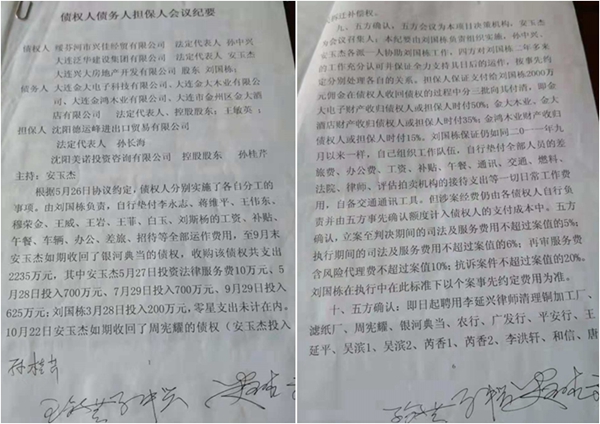 债权人债务人担保人会议纪要
债权人 绥芬河市兴佳经贸有限公司 法定代表人 孙中兴
大连泛华建设集团有限公司 法定代表人 安玉杰
大连兴大房地产开发有限公司 股东 刘国栋、
债务人 大连金大电子科技有限公司、大连金大木业有限公
司、大连金鸿木业有限公司、大连市金州区金大酒
店有限公司 法定代表人、控股股东: 王敏英;
担保人 沈阳德运峰进出口贸易有限公司
法定代表人 孙长海
沈阳美诺投资咨询有限公司 控股股东 孙桂芹
主持: 安玉杰
根据5月26日协议约定,债权人分别实施了各自分工的
事项,由刘国栋负责,自行垫付李永志、蒋维平、王伟东、
穆荣金、王威、王岩、王菲、白玉、刘斯杨的工资、补贴、
午餐、车辆、办公、差旅、招待等全部运作费用,至9月末
安玉杰如期收回了银河典当的债权,收购该债权共支出
2235万元,其中安玉杰5月27日投资法律服务费10万元、5
月28日投入700万元、7月29日投入700万元、9月29日投入
625万元;刘国栋3月28日投入200万元,零星支出未计在内。
10月22日安玉杰如期收回了周宪耀的债权(安玉杰投入
拆迁补偿权。
九、五方确认,五方会议为本项目决策机构,安玉杰
为会议召集人;本纪要由刘国栋负责组织实施,孙中兴、
安玉杰各派一人协助刘国栋工作。四方对刘国栋二年多来
的工作充分认可并保证全力支持其日后的运作,核事先约
定分别处理各自的关系。担保人保证支付给刘国栋2000万
元佣金在债权人收回债权的过程中分三批向其清付,即金
大电子财产收归债权人或担保人时付50%;金大木业、金大
酒店财产收归债权人或担保人时付35%;金鸿木业财产收归
债权人或担保人时付15%。刘国栋保证仍如同二0一一年九
月以来一样,自己组织工作队伍,自行垫付全部人员的差
旅费、办公费、工资、补贴、午餐、通讯、交通、燃料、
法院、律师、评估拍卖机构的接待支出等一切日常工作费
用,自备交通通讯工具。但涉案经费仍由各债权人自行负
责并由五方事先确认额度计入债权人的支付成本中。五方
确认,立案至判决期间的司法及服务费用不超过案值的5%;
执行期间的司法及服务费用不超过案值的6%;再审服务费
含风险代理费不超过案值10%;抗诉案件不超过案值的20%。
刘国栋在执行中在此标准下以个案事先约定费用为准。
十、五方确认:即日起聘用李延兴律师清理铜加工厂、
滤纸厂、周宪耀、银河典当、农行、广发行、平安行、王
延平、吴滨1、吴滨2、芮香1、芮香2、李洪轩、和信、唐
孙桂芹